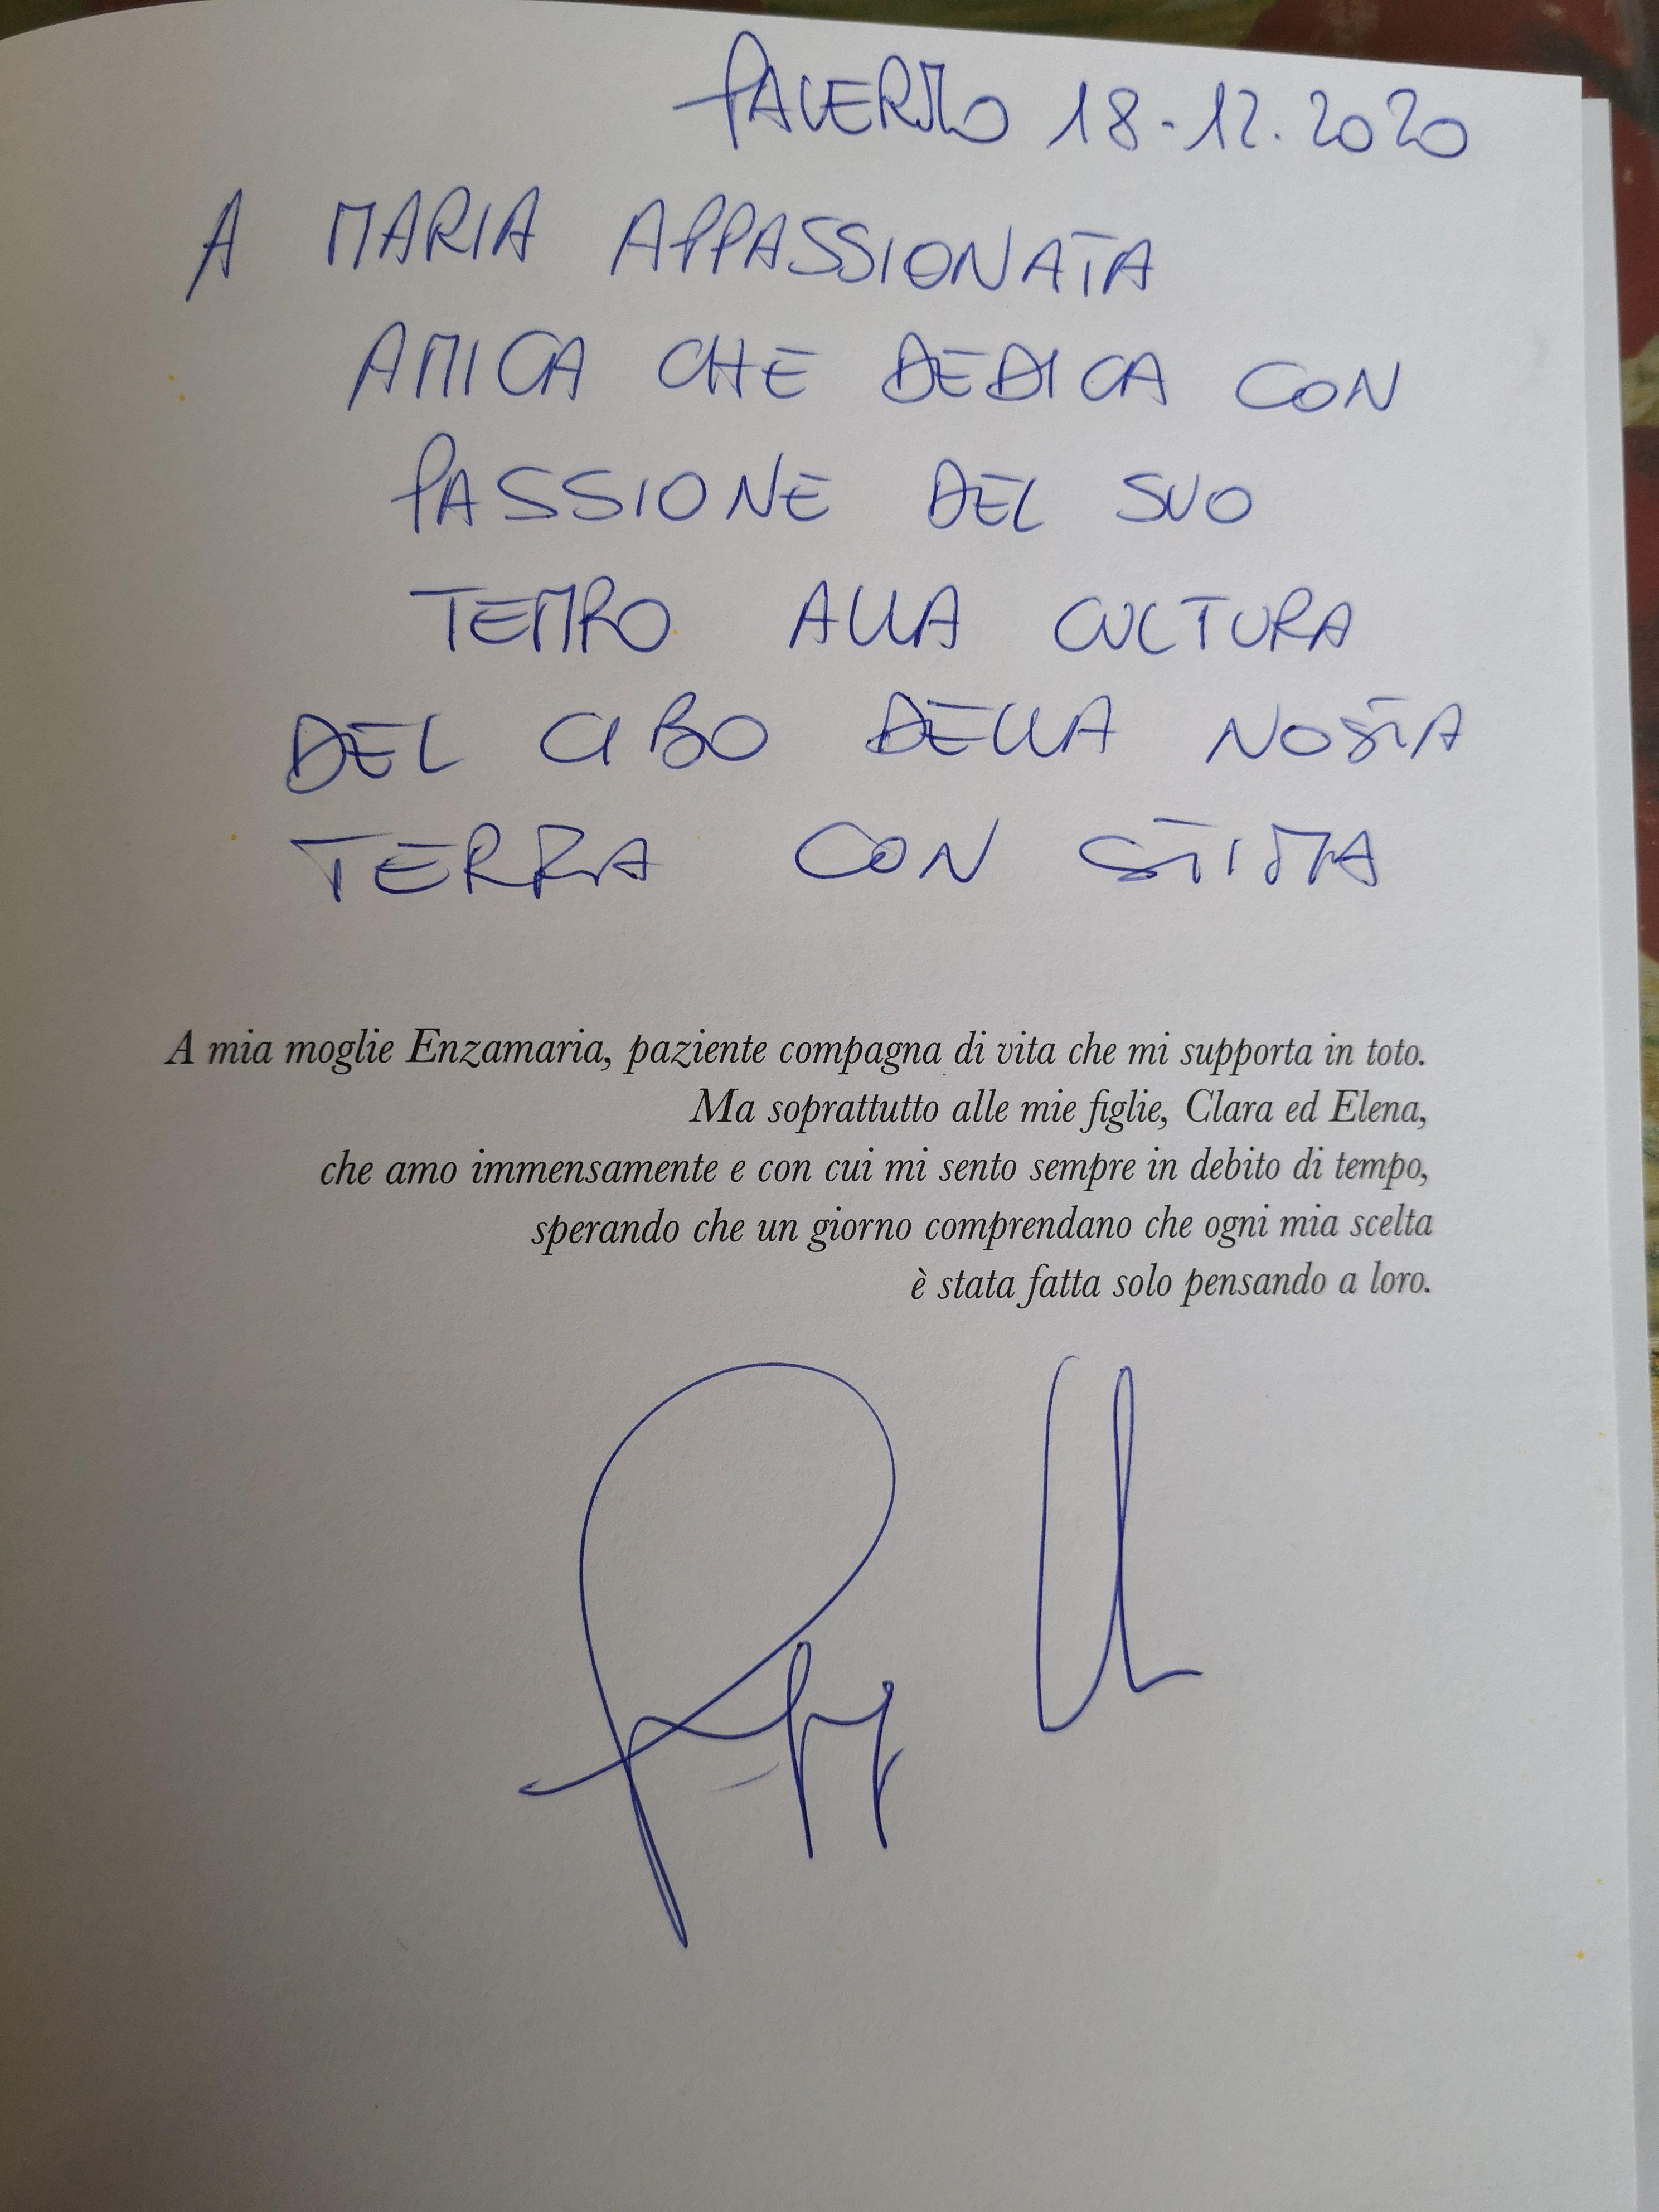 PALERMO 18-12.2020
A MARIA APPASSIONATA
AMICA CHE DEDICA CON
PASSIONE DEL SUO
TEMPO ALLA CULTURA
DEL CIBO DELLA NOSTRA
TERRA CON STIMA
A mia moglie Enzamaria, paziente compagna di vita che mi supporta in toto.
Ma soprattutto alle mie figlie, Clara ed Elena,
che amo immensamente e con cui mi sento sempre in debito di tempo,
sperando che un giorno comprendano che ogni mia scelta
è stata fatta solo pensando a loro.